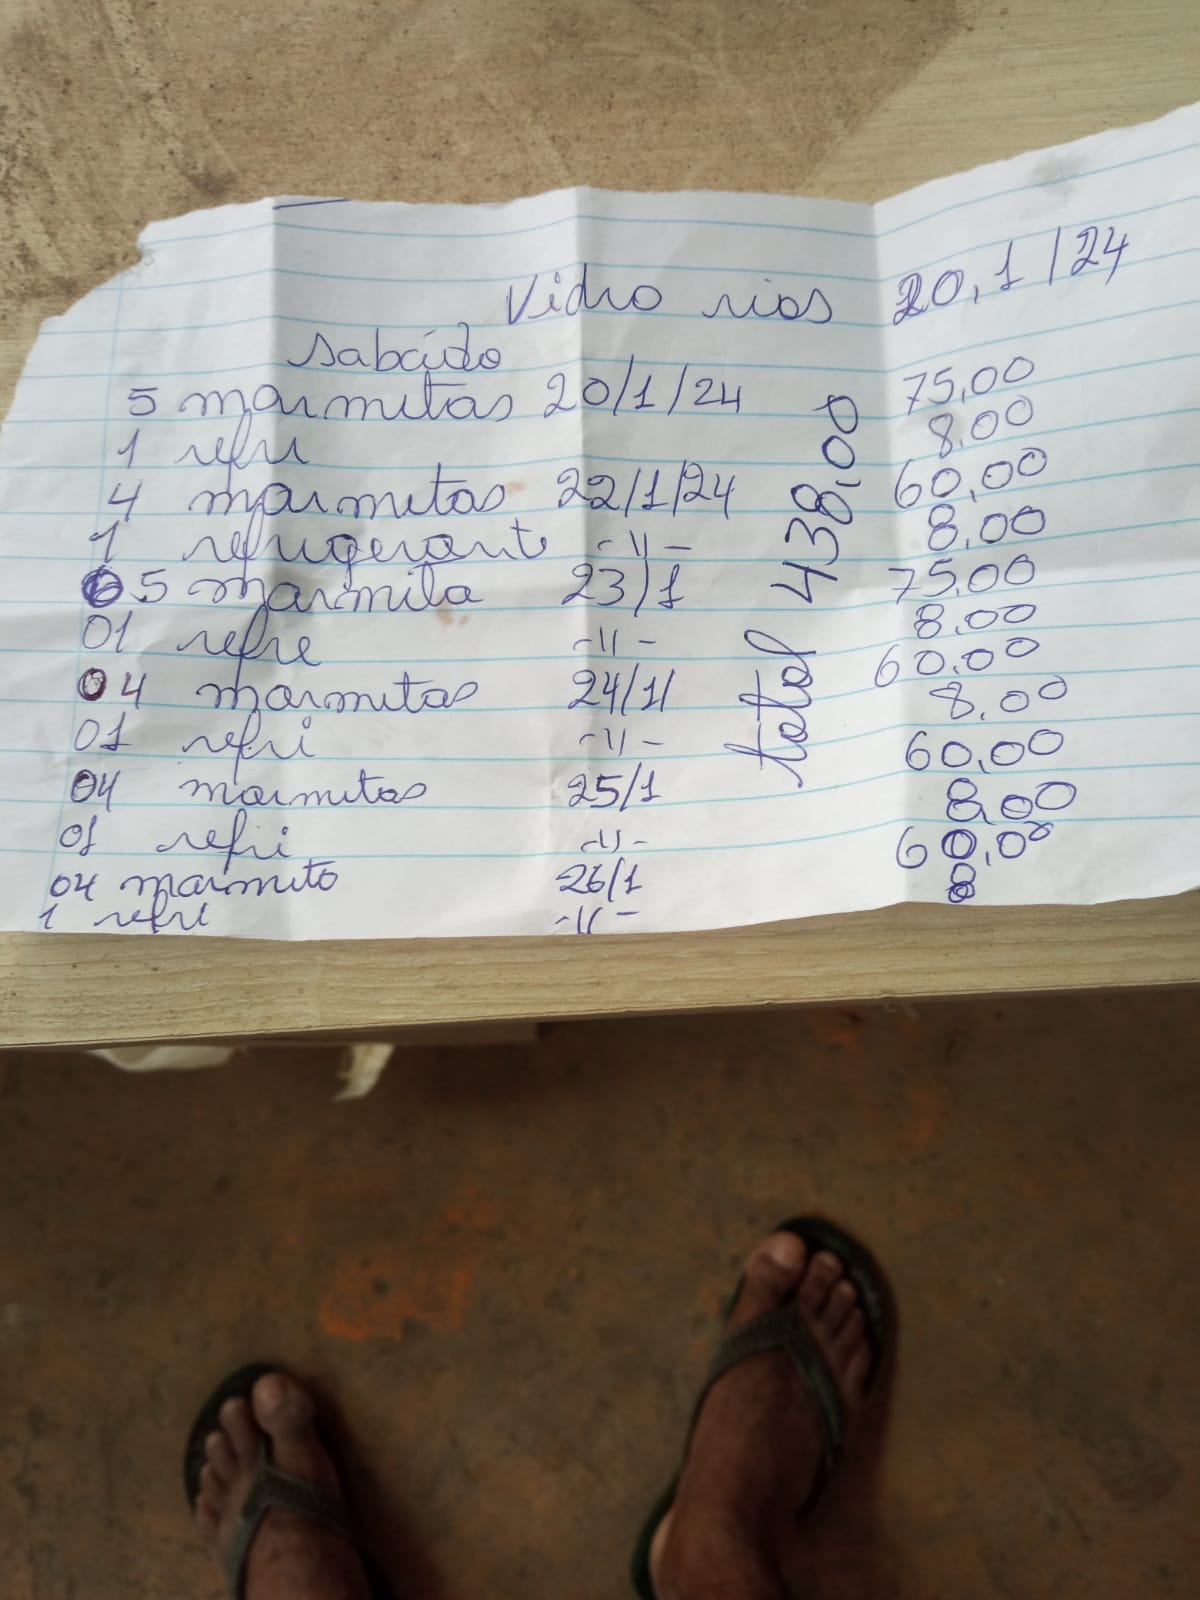 Vidro rios 20,1/24
Sabádo
5 marmitas 20/1/24 75,00
1 refri 8,00
4 marmitas 22/1/24 60,00
1 refrigerante -11- 8,00
5 marmita 23/1 75,00
01 refre -11- 8,00
04 marmitas 24/1/ 60,00
01 refri -11- 8,00
04 marmitas 25/1 60,00
01 refri -11- 8,00
04 marmita 26/1 60,00
1 refri -11- 8
total 438,00